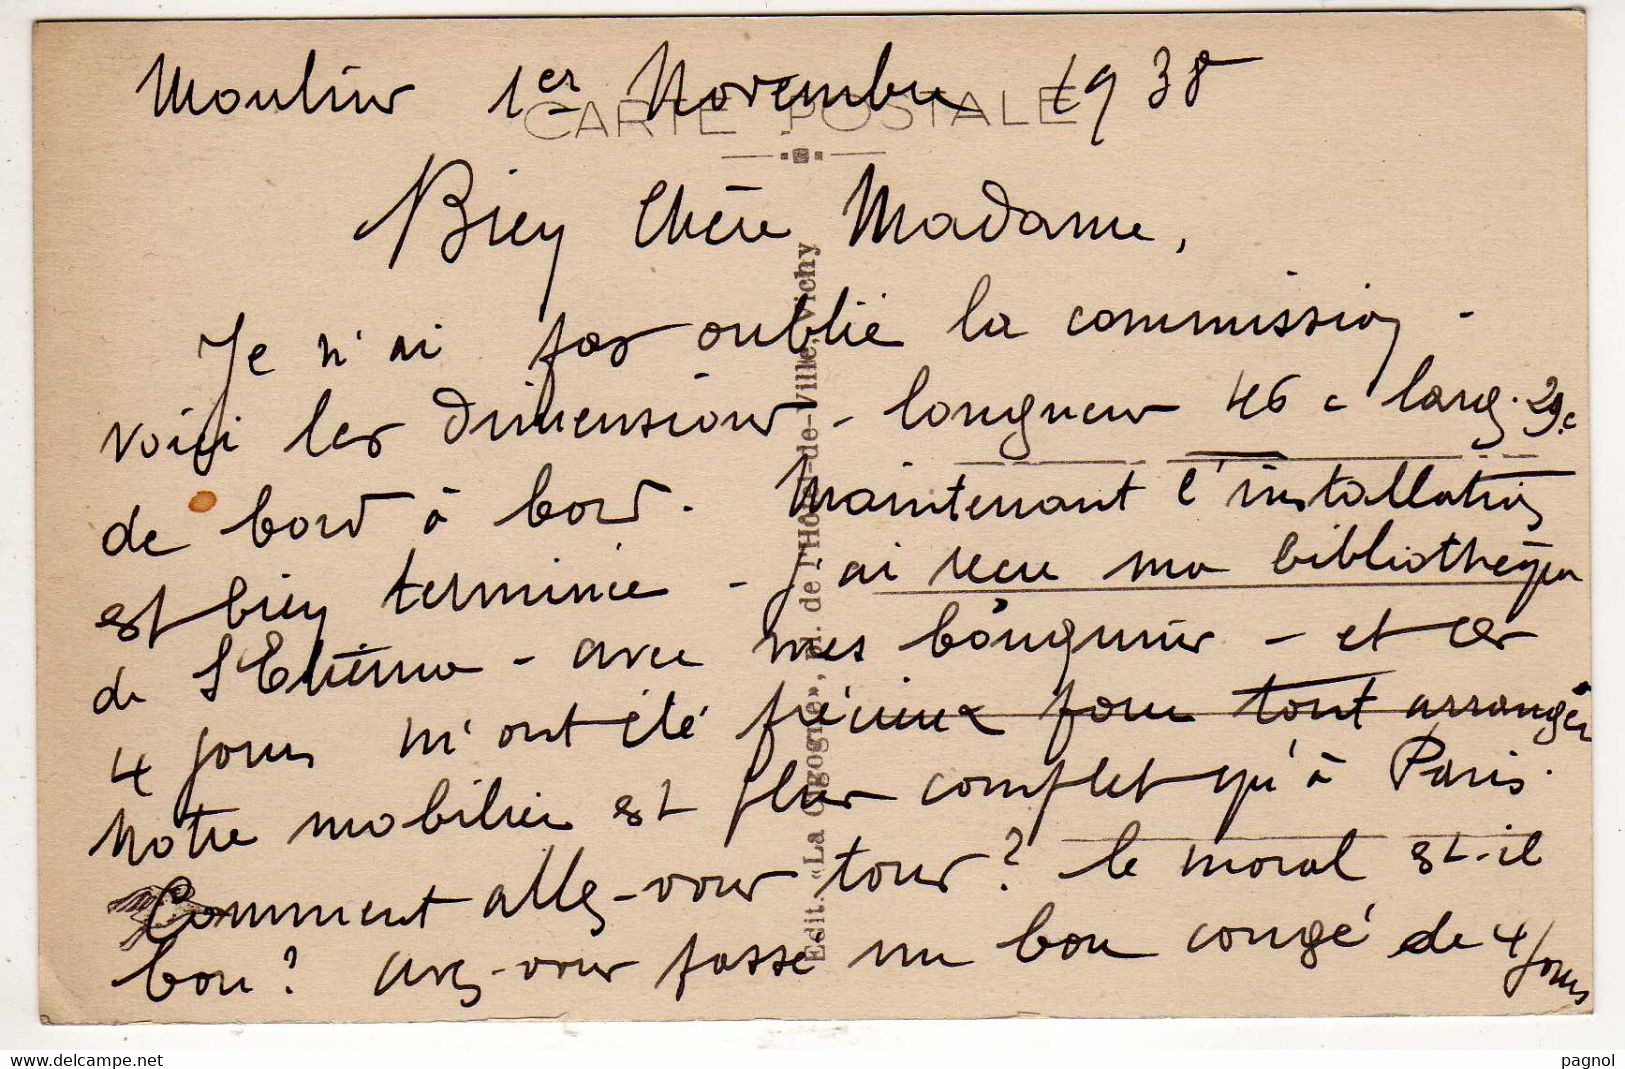 Moulins 1er Novembre 1938
CARTE POSTALE
Bien Chère Madame,
Je n'ai pas oublié la commission -
voici les dimensions - longueur 46 c larg. 29c
de bord à bord. Maintenant l'installation
est bien terminée - J'ai reçu ma bibliothèque
de St Etienne - avec mes bouquins - et ces
4 jours m'ont été précieux pour tout arranger
Notre mobilier est plus complet qu'à Paris.
Comment allez-vous tous? le moral est-il
bon? avez-vous passé un bon congé de 4 jours
Edit. «La Cigogne», pl. de l'Hôtel-de-Ville, Vichy
www.delcampe.net
pagnol